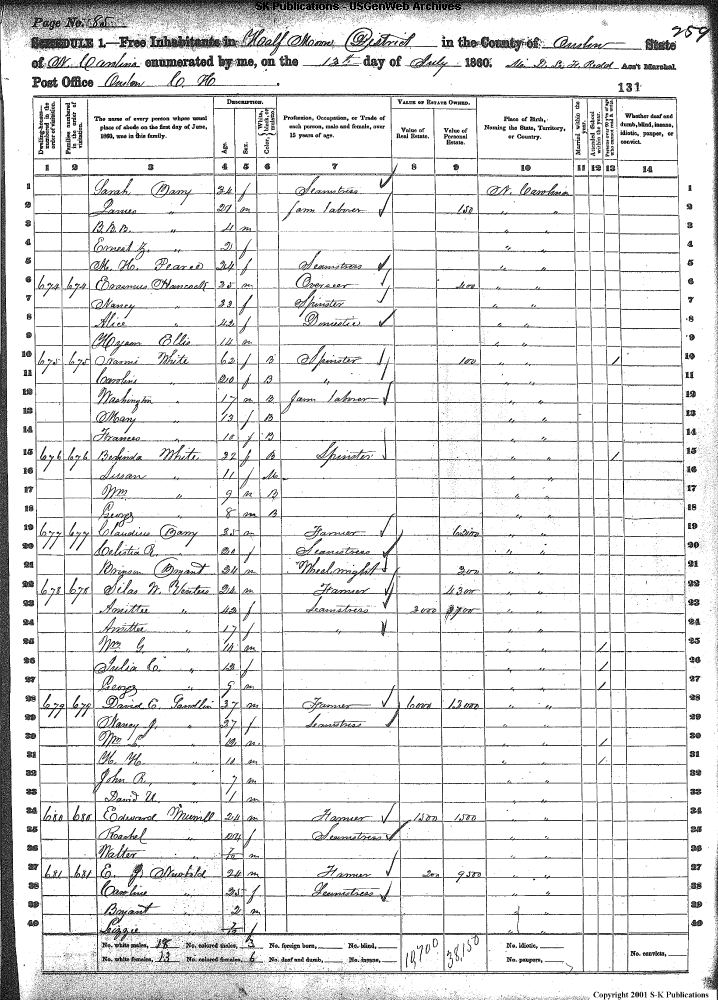 SK Publications - USGenWeb Archives
Page No. 85
259
SCHEDULE 1.—Free Inhabitants in Half Moon District in the County of Onslow State
of N. Carolina enumerated by me, on the 12th day of July 1860. Ass't Marshal
Post Office Onslow C. H.
131
Dwelling-houses—numbered in the order of visitation. Families numbered in the order of visitation. The name of every person whose usual place of abode on the first day of June, 1860, was in this family. DESCRIPTION. Age. Sex. Color, White, black, or mulatto. Profession, Occupation, or Trade of each person, male and female, over 15 years of age. VALUE OF ESTATE OWNED. Value of Real Estate. Value of Personal Estate. Place of Birth, Naming the State, Territory, or Country. Married within the year. Attended School within the year. Persons over 20 y'rs of age who cannot read & write. Whether deaf and dumb, blind, insane, idiotic, pauper, or convict.
1 2 3 4 5 6 7 8 9 10 11 12 13 14
1 Sarah 34 f Seamstress N. Carolina 1
2 James " 21 m farm laborer 150 " " 2
3 " 4 m " " 3
4 Ernest " 2 f " " 4
5 M. H. Pearce 24 f Seamstress " " 5
6 674 674 Erasmus Hancock 35 m Overseer 400 " " 6
7 Nancy " 33 f Spinster " " 7
8 Alice " 42 f Domestic " " 8
9 Ellis 14 m " " 9
10 675 675 White 62 f B Spinster 100 " " 1 10
11 Caroline " 20 f B " " " 11
12 Washington " 17 m B farm laborer " " 12
13 Mary " 13 f B " " 13
14 Frances " 10 f B " " 14
15 676 676 White 32 f B Spinster " " 1 15
16 Susan " 11 f M " " 16
17 Wm " 9 m B " " 17
18 George " 8 m B " " 18
19 677 677 35 m Farmer " " 19
20 Celestia R. " 20 f Seamstress " " 20
21 24 m Wheelwright 200 " " 21
22 678 678 Silas W. Venters 24 m Farmer 4300 " " 22
23 " 42 f Seamstress 3000 " " 23
24 " 17 f " " " 24
25 Wm G. " 14 m " " 1 25
26 Julia C. " 12 f " " 1 26
27 George " 9 m " " 1 27
28 679 679 David E. Sandlin 37 m Farmer 6000 13000 " " 28
29 Nancy J. " 27 f Seamstress " 29
30 Wm " 12 m " " 1 30
31 " 10 m " " 1 31
32 John R. " 7 m " " 32
33 David " 1 m 33
34 680 680 Edward Murrill 24 m Farmer 1500 1500 " " 34
35 Rachel " f Seamstress " " 35
36 Walter " m " " 36
37 681 681 E. Newbold 24 m Farmer 200 9500 " " 37
38 Caroline " 25 f Seamstress " " 38
39 Bryant " 2 m " " 39
40 Lizzie " f " " 40
No. white males, 18 No. colored males, 3 No. foreign born, No. blind, 38,150 No. idiotic,
No. white females, 13 No. colored females, 6 No. deaf and dumb, No. insane, No. paupers, No. convicts,
Copyright 2001 S-K Publications